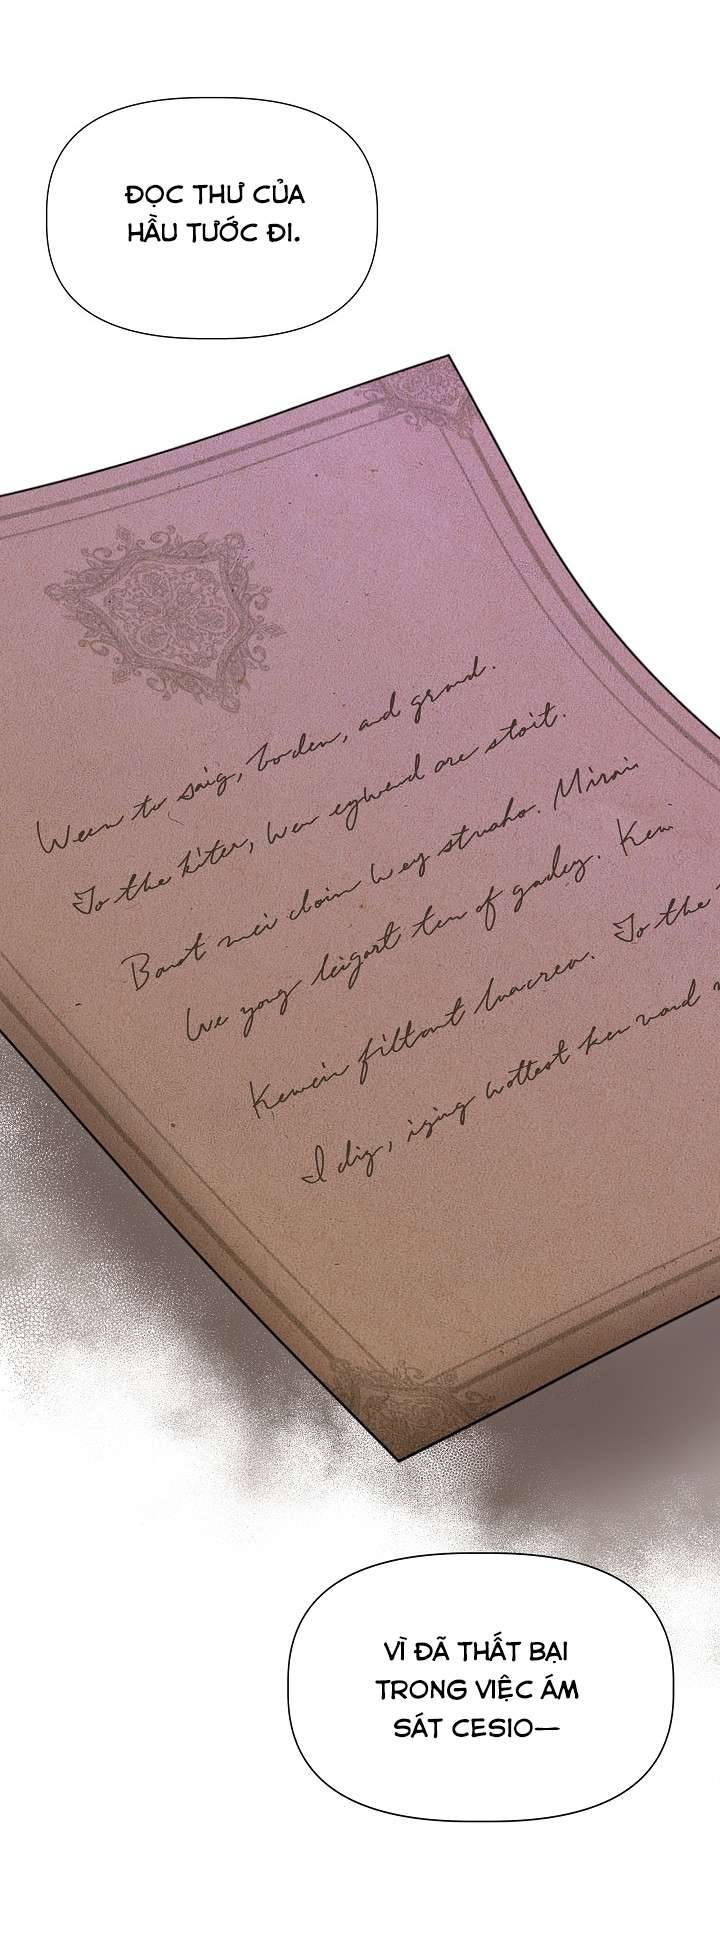 ĐỌC THƯ CỦA
HẦU TƯỚC ĐI.
Ween to saig, boden, and grand.
To the kiter, wen eywend are stoit.
Banot mei cloin wey stusho. Mirai
We yong leigart ten of gadey. Kewi
Kewein filtant luacrea. To the
I dig, izing wottest ken vand
VÌ ĐÃ THẤT BẠI
TRONG VIỆC ÁM
SÁT CESIO—